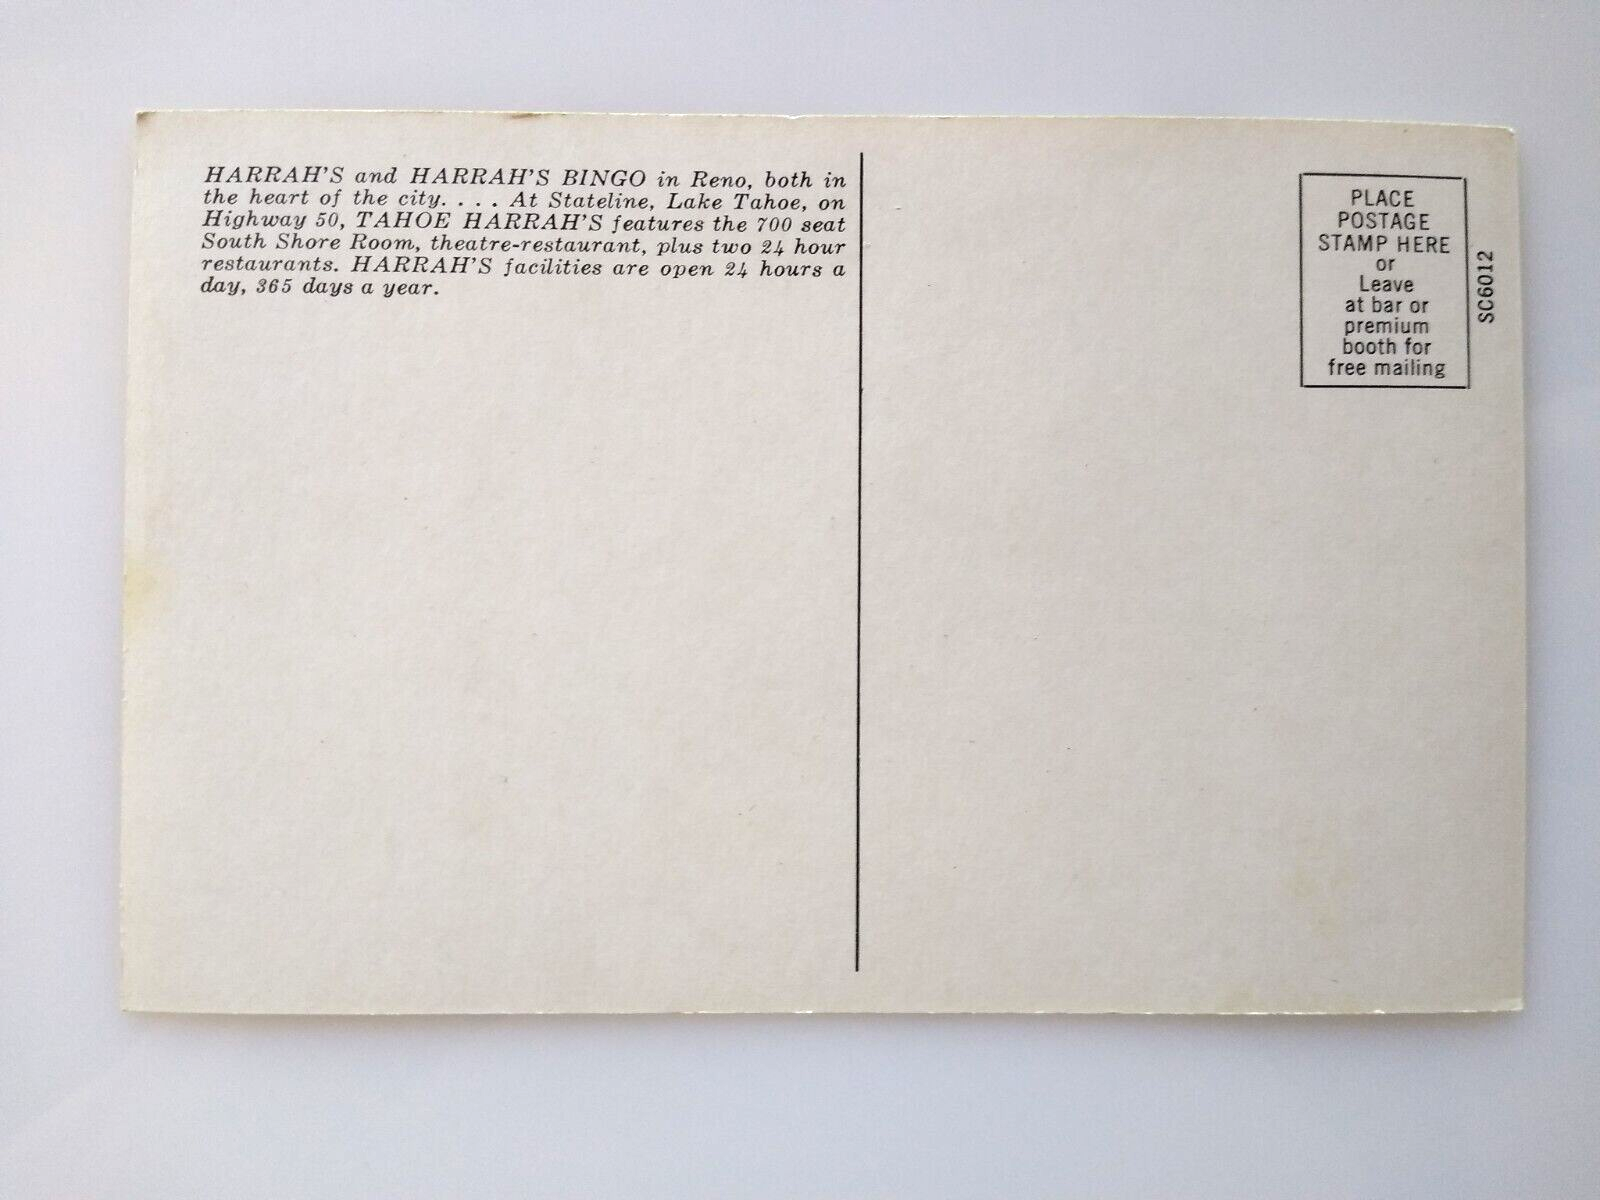 HARRAH'S and HARRAH'S BINGO in Reno, both in
the heart of the city. . . . At Stateline, Lake Tahoe, on
Highway 50, TAHOE HARRAH'S features the 700 seat
South Shore Room, theatre-restaurant, plus two 24 hour
restaurants. HARRAH'S facilities are open 24 hours a
day, 365 days a year.
PLACE
POSTAGE
STAMP HERE
or
Leave
at bar or
premium
booth for
free mailing
SC6012